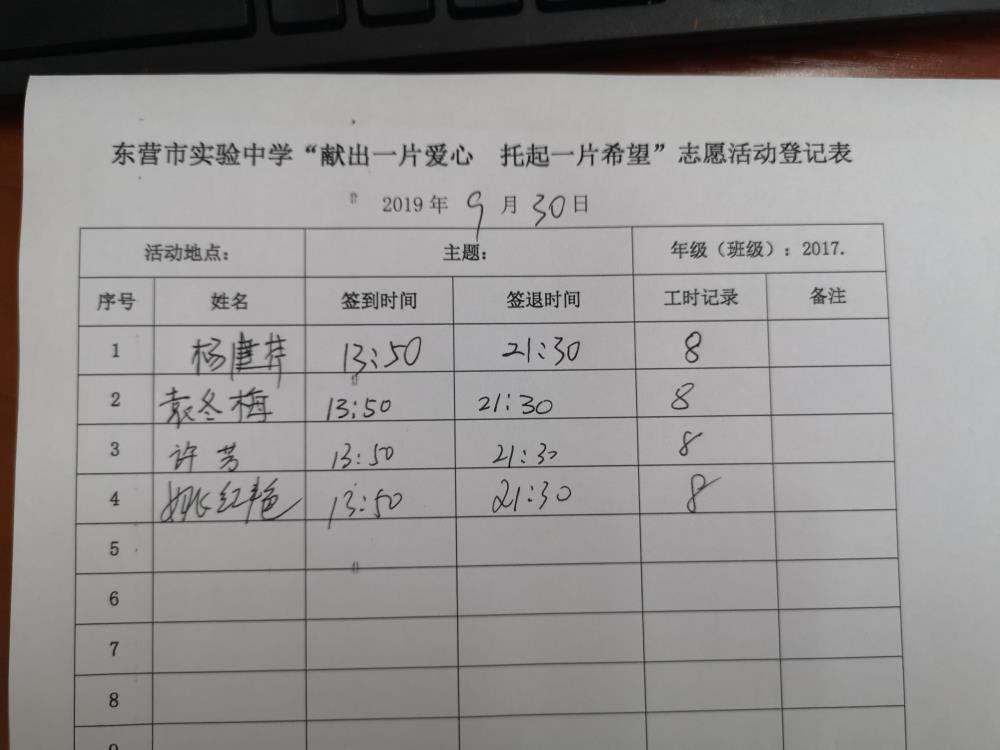 东营市实验中学“献出一片爱心 托起一片希望”志愿活动登记表
2019年 9 月 30 日
活动地点： 主题： 年级（班级）：2017.
序号 姓名 签到时间 签退时间 工时记录 备注
1 杨建 13:50 21:30 8
2 袁冬梅 13:50 21:30 8
3 许芳 13:50 21:30 8
4 姚红艳 13:50 21:30 8
5
6
7
8